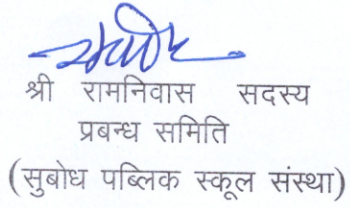 श्री रामनिवास सदस्य
प्रबन्ध समिति
(सुबोध पब्लिक स्कूल संस्था)